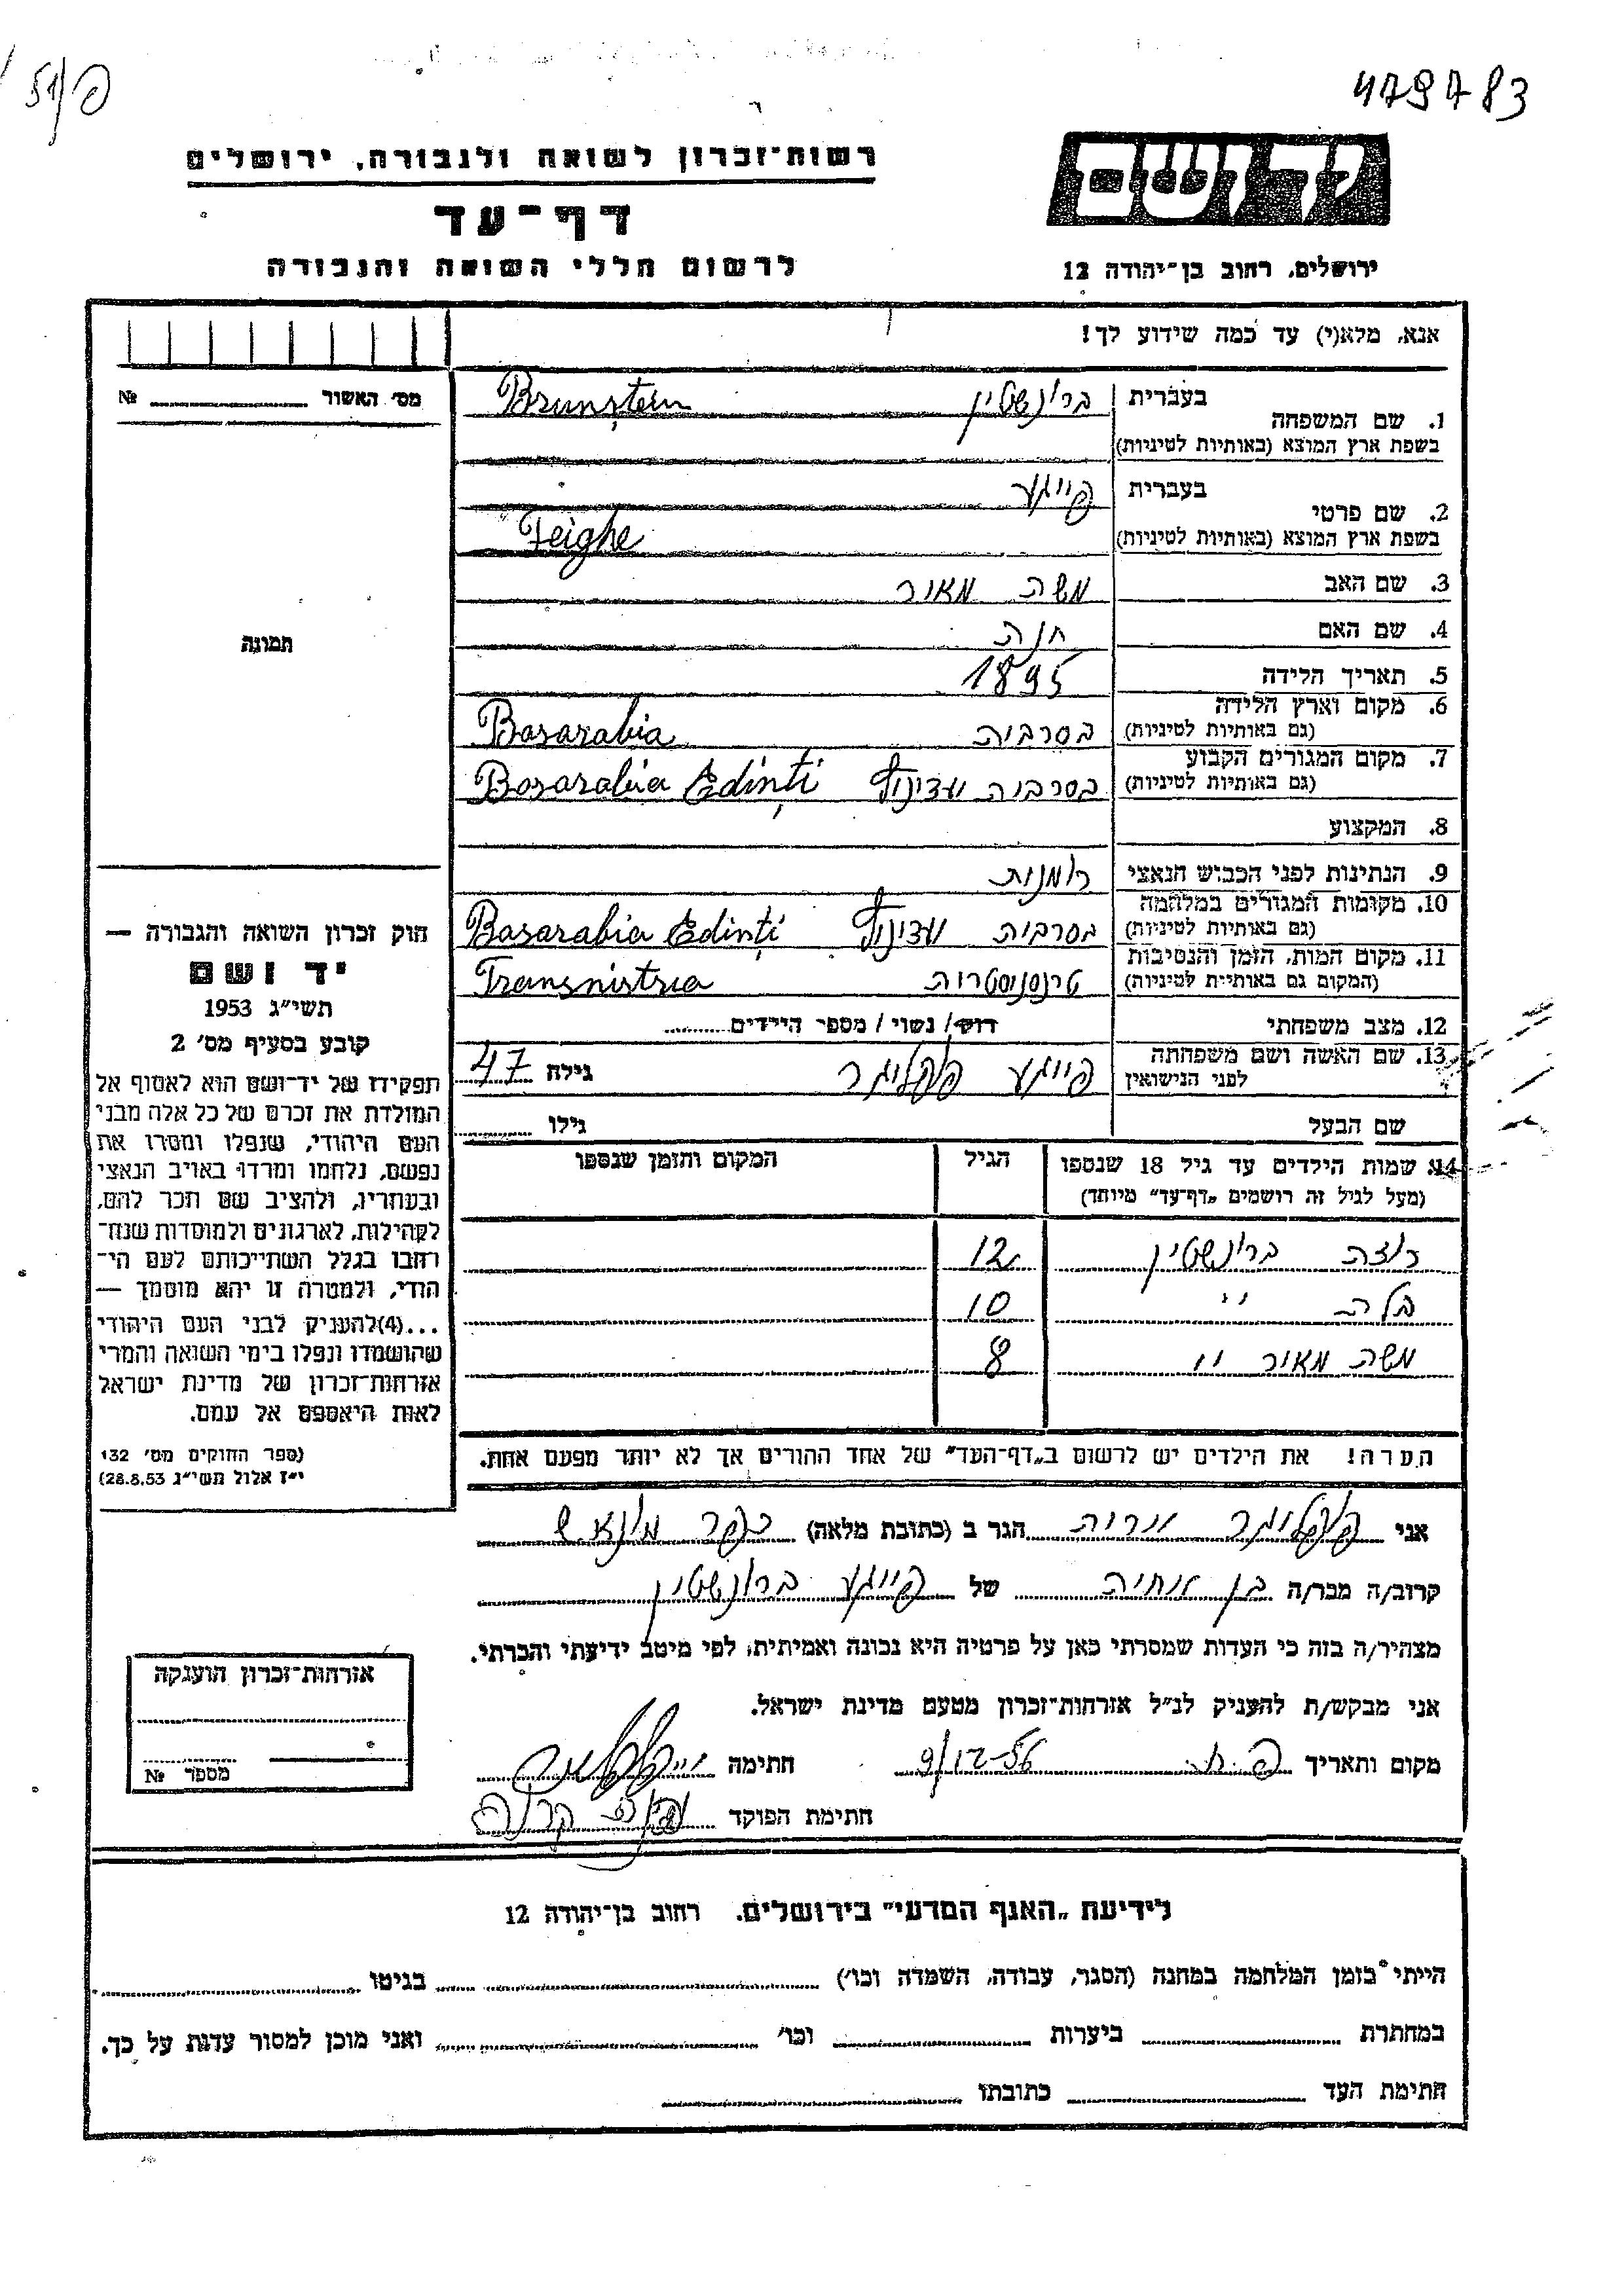 479783
51/פ
יד ושם
ירושלים, רחוב בן־יהודה 12
רשות־זכרון לשואה ולגבורה, ירושלים
דף־עד
לרשום חללי השואה והגבורה
אנא, מלא(י) עד כמה שידוע לך!
מס׳ האשור № 
תמונה
1. שם המשפחה בעברית ברונשטיין Brunștein
בשפת ארץ המוצא (באותיות לטיניות)
2. שם פרטי בעברית פייגע
בשפת ארץ המוצא (באותיות לטיניות) Feighe
3. שם האב משה מאיר
4. שם האם חנה
5. תאריך הלידה 1895
6. מקום וארץ הלידה בסרביה Basarabia
(גם באותיות לטיניות)
7. מקום המגורים הקבוע בסרביה יעדינץ Basarabia Edinți
(גם באותיות לטיניות)
8. המקצוע
9. הנתינות לפני הכבוש הנאצי רומנית
10. מקומות המגורים במלחמה בסרביה יעדינץ Basarabia Edinți
(גם באותיות לטיניות)
11. מקום המות, הזמן והנסיבות טרנסניסטריה Transnistria
(המקום גם באותיות לטיניות)
12. מצב משפחתי רווק / נשוי / מספר הילדים
13. שם האשה ושם משפחתה פייגע גילה 47
לפני הנישואין
שם הבעל גילו
14. שמות הילדים עד גיל 18 שנספו הגיל המקום והזמן שנספו
(מעל לגיל זה רושמים „דף־עד״ מיוחד)
רוזה ברונשטיין 12
בלה 〃 10
משה מאיר 〃 8
הערה! את הילדים יש לרשום ב„דף־העד״ של אחד ההורים אך לא יותר מפעם אחת.
חוק זכרון השואה והגבורה —
יד ושם
תשי״ג 1953
קובע בסעיף מס׳ 2
תפקידו של יד־ושם הוא לאסוף אל
המולדת את זכרם של כל אלה מבני
העם היהודי, שנפלו ומסרו את
נפשם, נלחמו ומרדו באויב הנאצי
ובעוזריו, ולהציב שם וזכר להם,
לקהילות, לארגונים ולמוסדות שנח־
רבו בגלל השתייכותם לעם הי־
הודי, ולמטרה זו יהא מוסמך —
...(4)להעניק לבני העם היהודי
שהושמדו ונפלו בימי השואה והמרי
אזרחות־זכרון של מדינת ישראל
לאות היאספם אל עמם.
(ספר החוקים מס׳ 132
י״ז אלול תשי״ג 28.8.53)
אני הגר ב (כתובת מלאה)
קרוב/ה מכר/ה בן אחיה של פייגע ברונשטיין
מצהיר/ה בזה כי העדות שמסרתי כאן על פרטיה היא נכונה ואמיתית, לפי מיטב ידיעתי והכרתי.
אני מבקש/ת להעניק לנ״ל אזרחות־זכרון מטעם מדינת ישראל.
מקום ותאריך 9/12-56 חתימה
חתימת הפוקד
אזרחות־זכרון הוענקה
מספר №
לידיעת „האגף המדעי״ בירושלים. רחוב בן־יהודה 12
הייתי בזמן המלחמה במחנה (הסגר, עבודה, השמדה וכו׳) בגיטו
במחתרת ביערות וכו׳ ואני מוכן למסור עדות על כך.
חתימת העד כתובתו